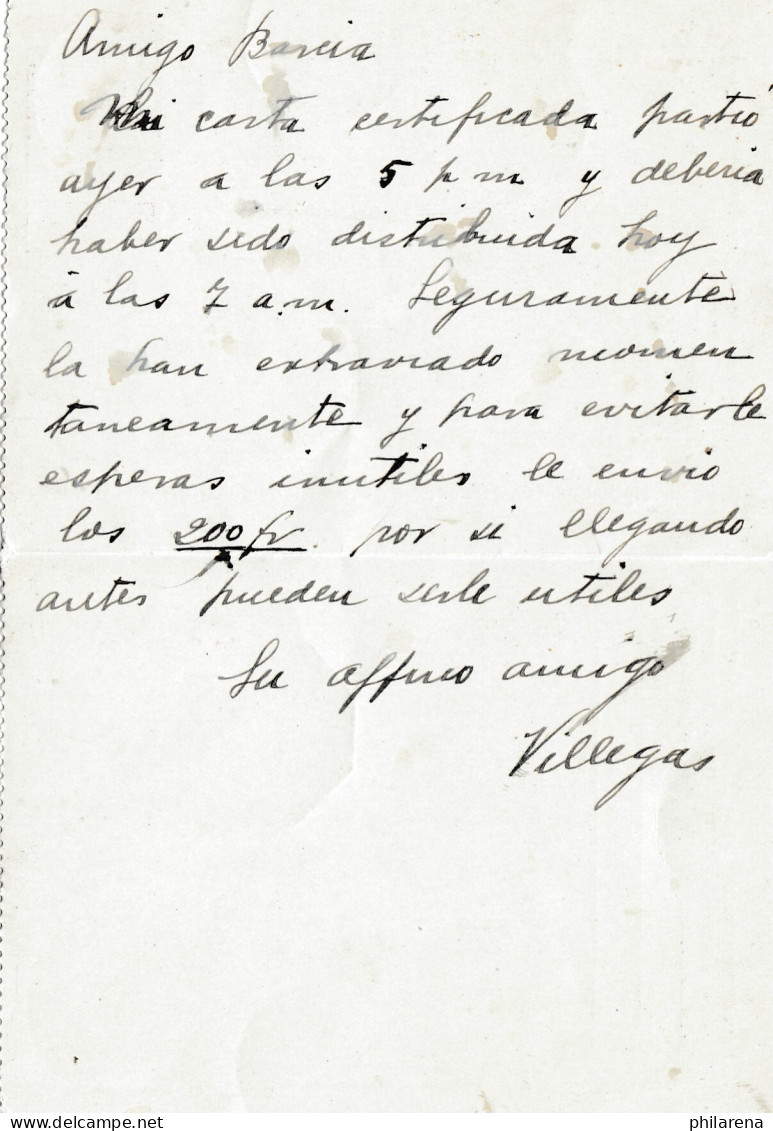 Amigo Barcia
Mi carta certificada partió
ayer a las 5 p m y deberia
haber sido distribuida hoy
á las 7 a.m. Seguramente
la han extraviado momen
taneamente y para evitarle
esperas inutiles le envio
los 200 fr por si llegando
antes pueden serle utiles
Su affmo amigo
Villegas
www.delcampe.net
philarena